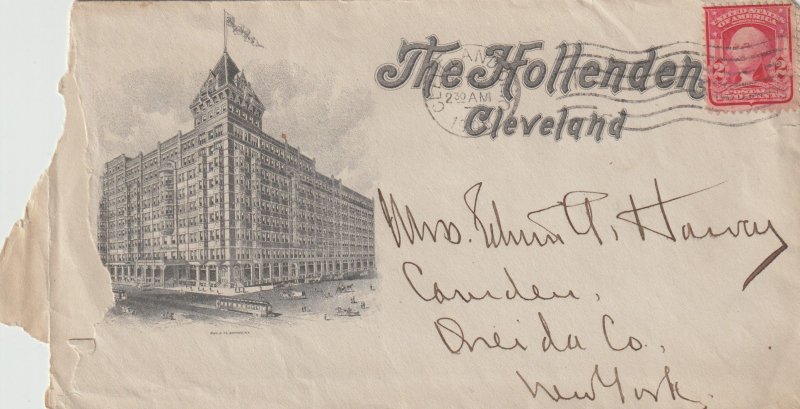 The Hollenden
Cleveland
UNITED STATES
OF AMERICA
2 2
CLEVELAND
2 30 AM
Mrs. Edwin P. Harvey
Camden,
Oneida Co.,
New York.